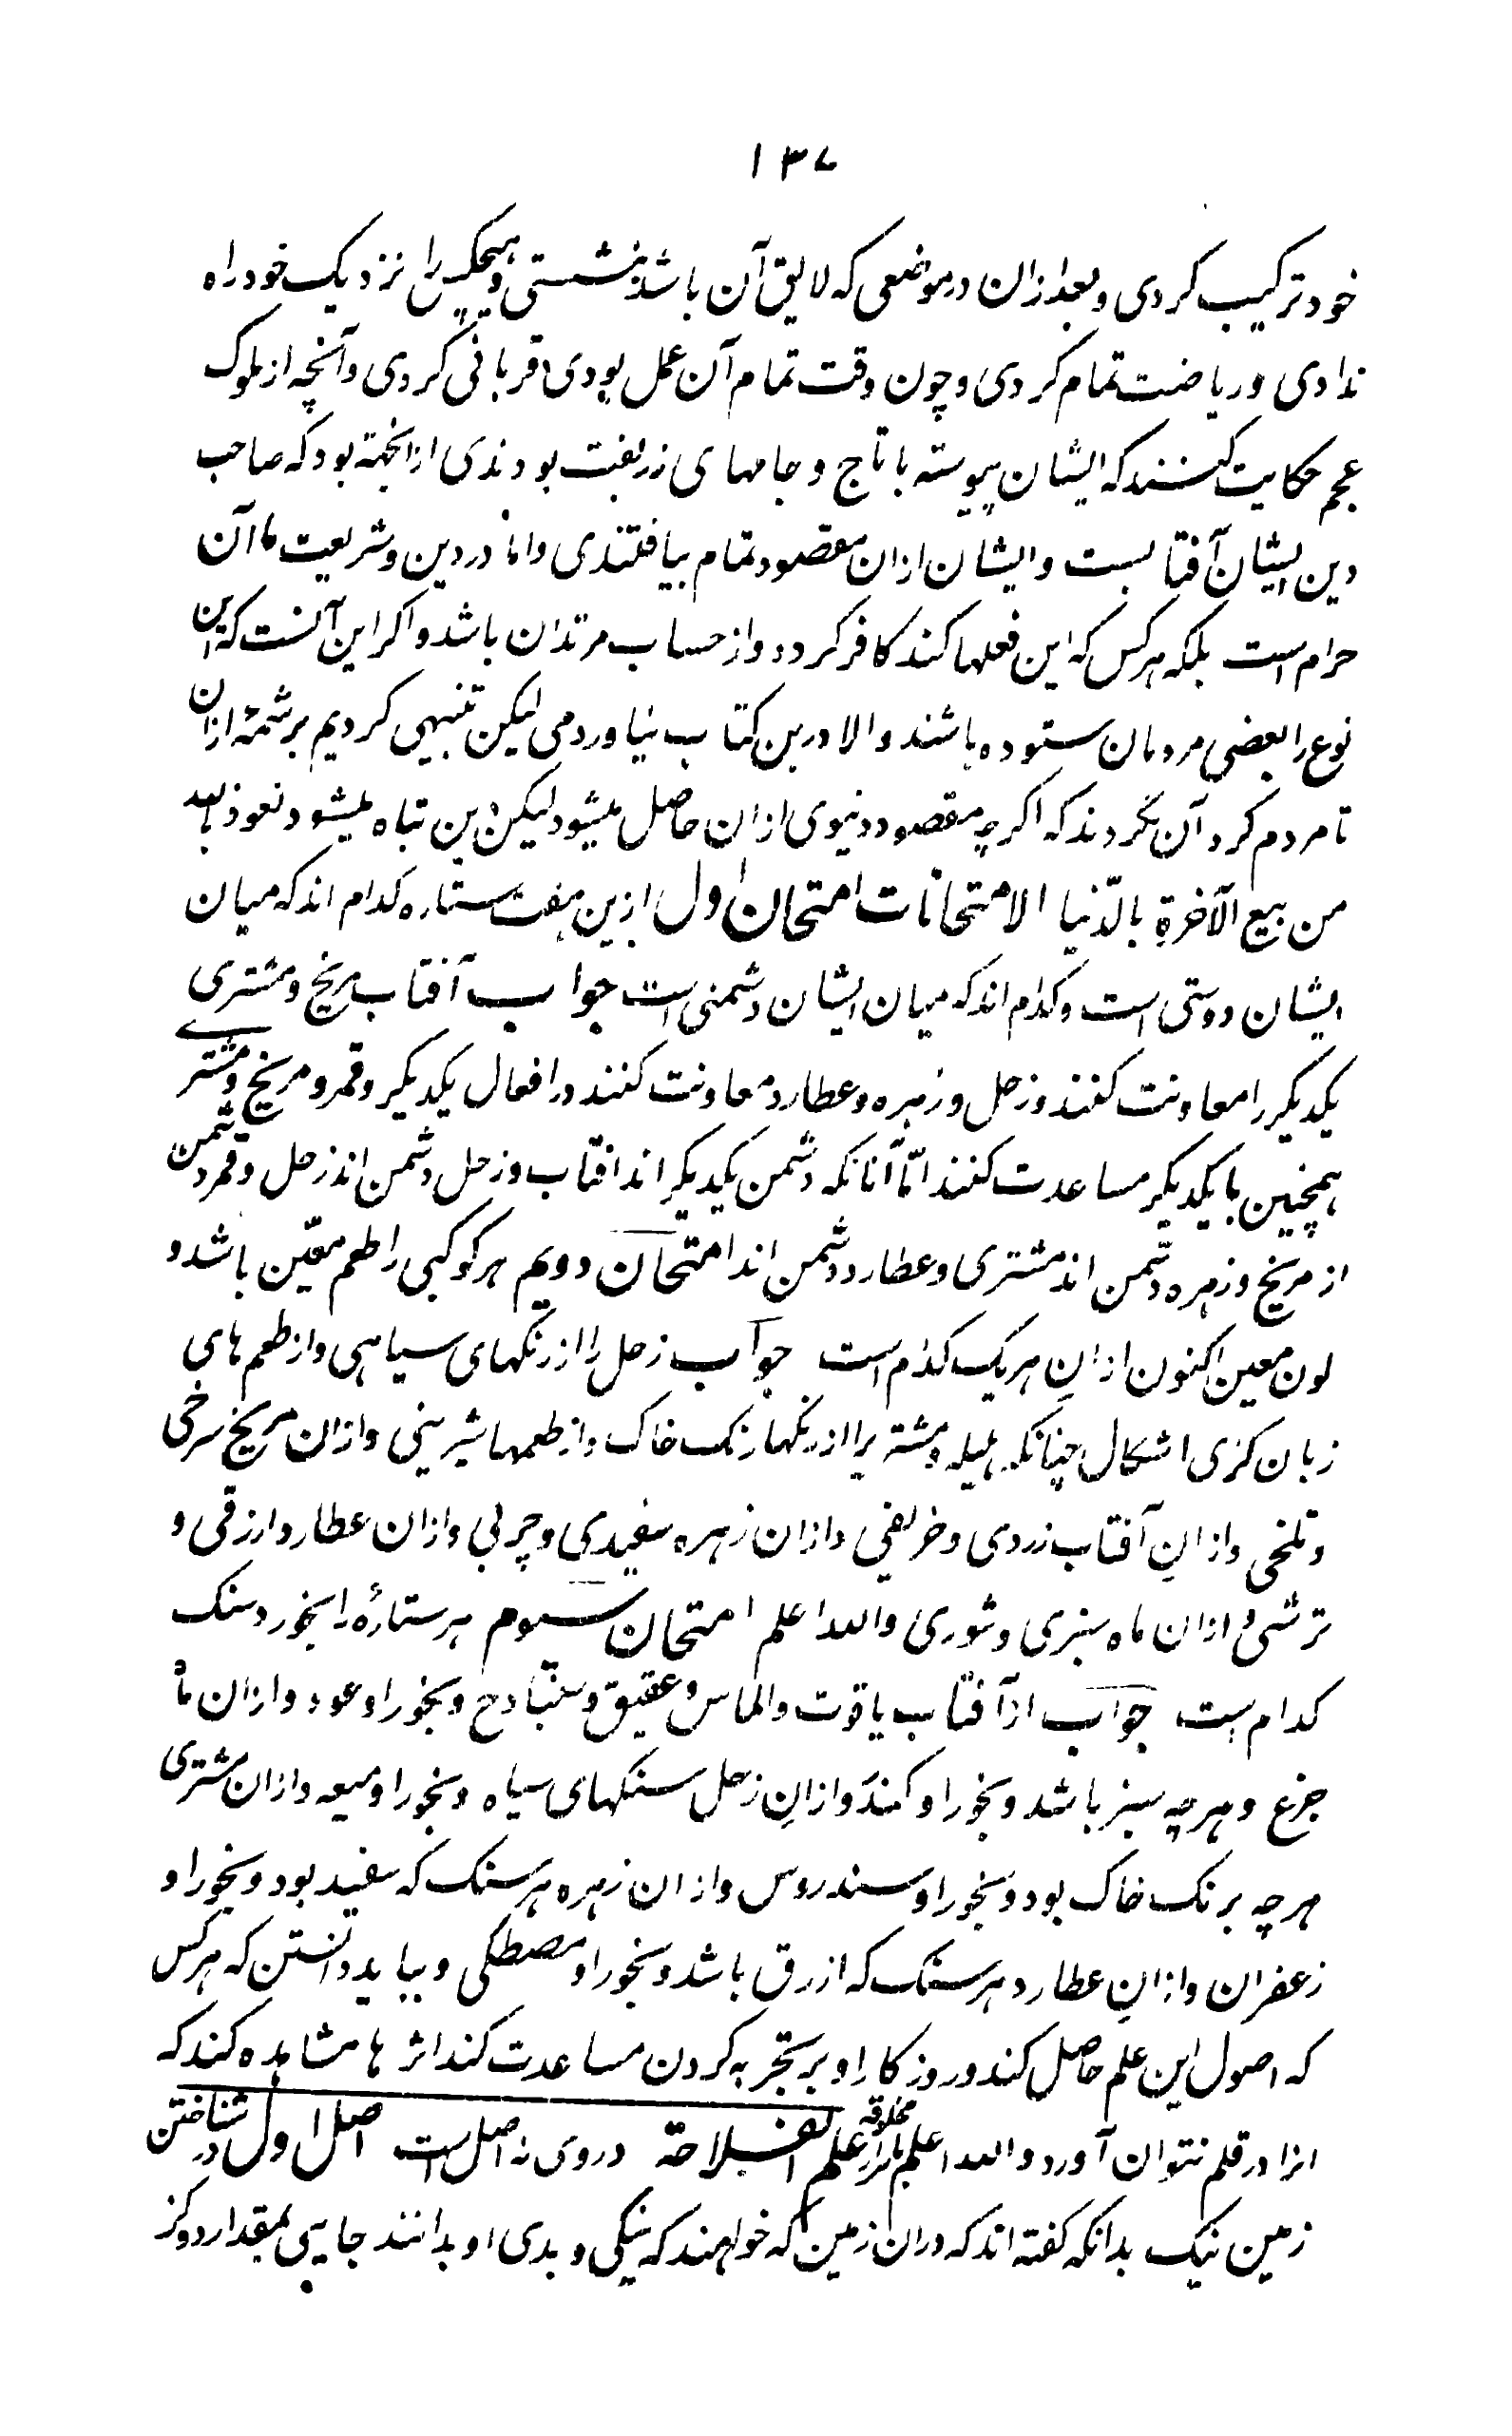 ۱۳۷
خود ترکیب کردی و بعد ازان در موضعی که لایق آن باشد بنشستی و هیچکس را نزدیک خود راه
ندادی و ریاضت تمام کردی و چون وقت تمام آن عمل بودی قربانی کردی و آنچه از ملوک
عجم حکایت کنند که ایشان پیوسته با تاج و جامهای زربفت بودندی ازانجهة بود که صاحب
دین ایشان آفتابست و ایشان ازان مقصود تمام بیافتندی و اما در دین و شریعت ما آن
حرام است بلکه هر کس که این فعلها کند کافر کردد و از حساب مرتدان باشد و اکر این آنست که این
نوع را بعضی مردمان ستوده باشند و الا درین کتاب نیاوردمی لیکن تنبیهی کردیم بر شمهٔ ازان
تا مردم کرد آن نکردند که اکرچه مقصود دنیوی ازان حاصل میشود لیکن دین تباه میشود نعوذ بالله
من بیع الآخرةِ بالدّنیا الامتحانات امتحان اول ازین هفت ستاره کدام اند که میان
ایشان دوستی است و کدام اند که میان ایشان دشمنی است جواب آفتاب مریخ و مشتری
یکدیکر را معاونت کنند و زحل و زهره و عطارد معاونت کنند در افعال یکدیکر و قمر و مریخ و مشتری
همچنین با یکدیکر مساعدت کنند امّا آنانکه دشمن یکدیکر اند افتاب و زحل دشمن اند زحل و قمر دشمن
از مریخ و زهره دشمن اند مشتری و عطارد دشمن اند امتحان دویم هر کوکبی را طعم معیّن باشد و
لون معین اکنون ازانِ هر یک کدام است جواب زحل را از رنکهای سیاهی و از طعم های
زبان کزی اشکال چنانکه هلیله و مشتریرا از رنکها رنک خاک و از طعمها شیرینی و ازان مریخ سرخی
و تلخی و ازانِ آفتاب زردی و حریفی و ازان زهره سفیدی و چربی و ازان عطارد ازرقی و
ترشی و ازان ماه سبزی و شوری والله اعلم امتحان سیوم هر ستارهٔ را بخور و سنک
کدام است جواب از آفتاب یاقوت و الماس و عقیق و سنبادح و بخور او عود و ازان ماه
جزع و هرچه سبز باشد و بخور او کندَر و ازانِ زحل سنکهای سیاه و بخور او میعه و ازان مشتری
هرچه برنک خاک بود و بخور او سندروس و ازان زهره هر سنک که سفید بود و بخور او
زعفران و ازانِ عطارد هر سنک که ازرق باشد و بخور او مصطکی و بباید دانستن که هر کس
که اصول این علم حاصل کند و روزکار او بر تجربه کردن مساعدت کند اثرها مشاهده کند که
انرا در قلم نتوان آورد والله اعلم باسرار مخلوقه علم الفلاحة در وی نه اصل است اصل اول در شناختن
زمین نیک بدانکه کفته اند که دران زمین که خواهند که نیکی و بدی او بدانند جایی بمقدار دو کز